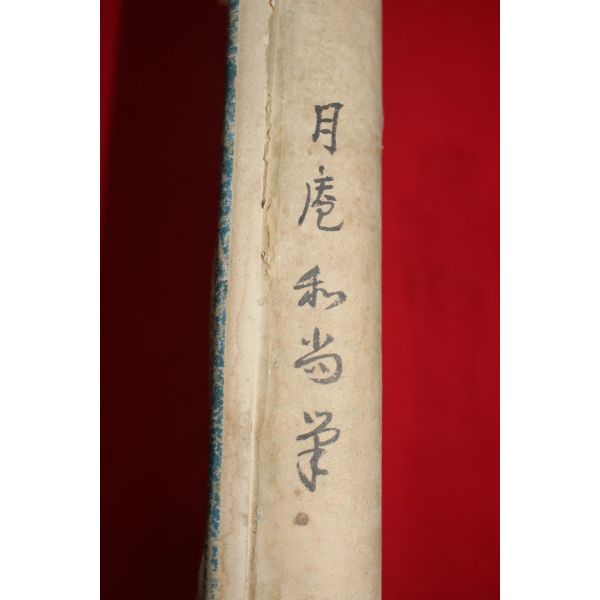 月庵和尚筆